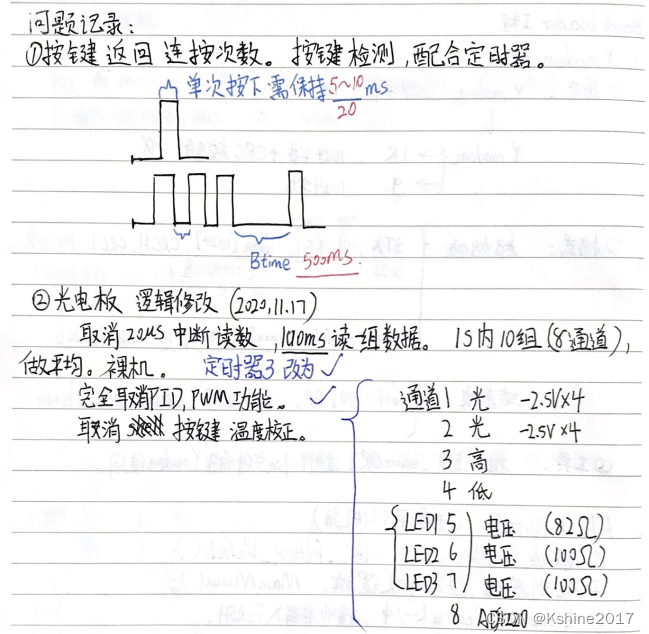 问题记录:
①按键返回连按次数。按键检测,配合定时器。
单次按下需保持5~10ms
20
Btime 500ms.
②光电板 逻辑修改 (2020,11.17)
取消20us中断读数,100ms读一组数据。1S内10组(8通道),
做平均。裸机。 定时器3 改为 ✓
完全取消PID,PWM功能。 ✓
取消 按键 温度校正。
通道1 光 -2.5V×4
2 光 -2.5V×4
3 高
4 低
LED1 5 电压 (82Ω)
LED2 6 电压 (100Ω)
LED3 7 电压 (100Ω)
8
@Kshine2017